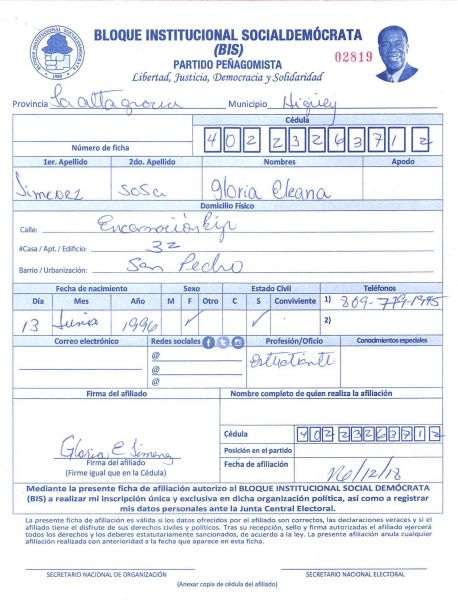 BLOQUE INSTITUCIONAL SOCIALDEMÓCRATA
(BIS)
02819
PARTIDO PEÑAGOMISTA
Libertad, Justicia, Democracia y Solidaridad
BLOQUE INSTITUCIONAL SOCIALDEMOCRATA
1989
Provincia La altagracia Municipio Higüey
Cédula
Número de ficha 402 2326371 2
1er. Apellido 2do. Apellido Nombres Apodo
Jimenez Sosa Gloria Eleana
Domicilio Físico
Calle: Encarnación
#Casa / Apt. / Edificio: 32
Barrio / Urbanización: San Pedro
Fecha de nacimiento Sexo Estado Civil Teléfonos
Día Mes Año M F Otro C S Conviviente 1) 809-779-1995
13 Junio 1996 ✓ ✓ 2)
Correo electrónico Redes sociales Profesión/Oficio Conocimientos especiales
@ estudiante
@
@
Firma del afiliado Nombre completo de quien realiza la afiliación
Cédula 402 2326371 2
Posición en el partido
Gloria E Jimenez
Firma del afiliado
(Firme igual que en la Cédula)
Fecha de afiliación 16/12/18
Mediante la presente ficha de afiliación autorizo al BLOQUE INSTITUCIONAL SOCIAL DEMÓCRATA
(BIS) a realizar mi inscripción única y exclusiva en dicha organización política, así como a registrar
mis datos personales ante la Junta Central Electoral.
La presente ficha de afiliación es válida si los datos ofrecidos por el afiliado son correctos, las declaraciones veraces y si el afiliado
tiene el disfrute de sus derechos civiles y políticos. Tras su revisión, sello y firma autorizadas el afiliado ejercerá
todos los derechos y los deberes estatutariamente sancionados, de acuerdo a la ley. La presente afiliación anula cualquier
afiliación realizada con anterioridad a la fecha que aparece en esta ficha.
SECRETARIO NACIONAL DE ORGANIZACIÓN SECRETARIO NACIONAL ELECTORAL
(Anexar copia de cédula del afiliado)